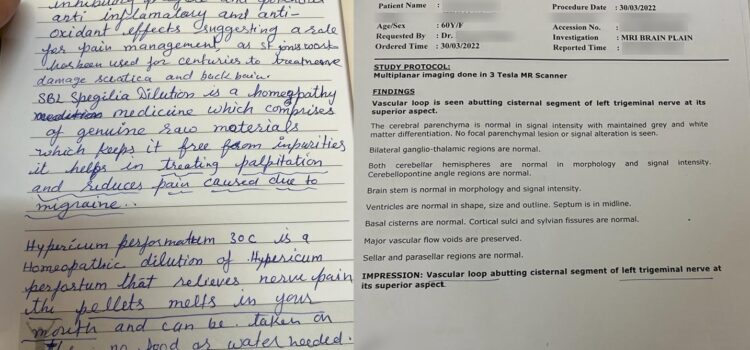 inhibitory
anti inflamatory and anti-
oxidant effects suggesting a role
for pain management, as st jons wort
has been used for centuries to treat nerve
damage sciatica and back pain.
SBL Spegilia Dilution is a homeopathy
medicine which comprises
of genuine raw materials
which keeps it free from impurities
it helps in treating palpitation
and reduces pain caused due to
migraine..
Hypericum performatum 30C is a
Homeopathic dilution of Hypericum
perfortum that relieves nerve pain
the pellets melts in your
mouth and can be taken on
no food or water needed.
Patient Name :
Procedure Date : 30/03/2022
Age/Sex : 60Y/F
Accession No. :
Requested By : Dr.
Investigation : MRI BRAIN PLAIN
Ordered Time : 30/03/2022
Reported Time :
STUDY PROTOCOL:
Multiplanar imaging done in 3 Tesla MR Scanner
FINDINGS
Vascular loop is seen abutting cisternal segment of left trigeminal nerve at its
superior aspect.
The cerebral parenchyma is normal in signal intensity with maintained grey and white
matter differentiation. No focal parenchymal lesion or signal alteration is seen.
Bilateral ganglio-thalamic regions are normal.
Both cerebellar hemispheres are normal in morphology and signal intensity.
Cerebellopontine angle regions are normal.
Brain stem is normal in morphology and signal intensity.
Ventricles are normal in shape, size and outline. Septum is in midline.
Basal cisterns are normal. Cortical sulci and sylvian fissures are normal.
Major vascular flow voids are preserved.
Sellar and parasellar regions are normal.
IMPRESSION: Vascular loop abutting cisternal segment of left trigeminal nerve at
its superior aspect